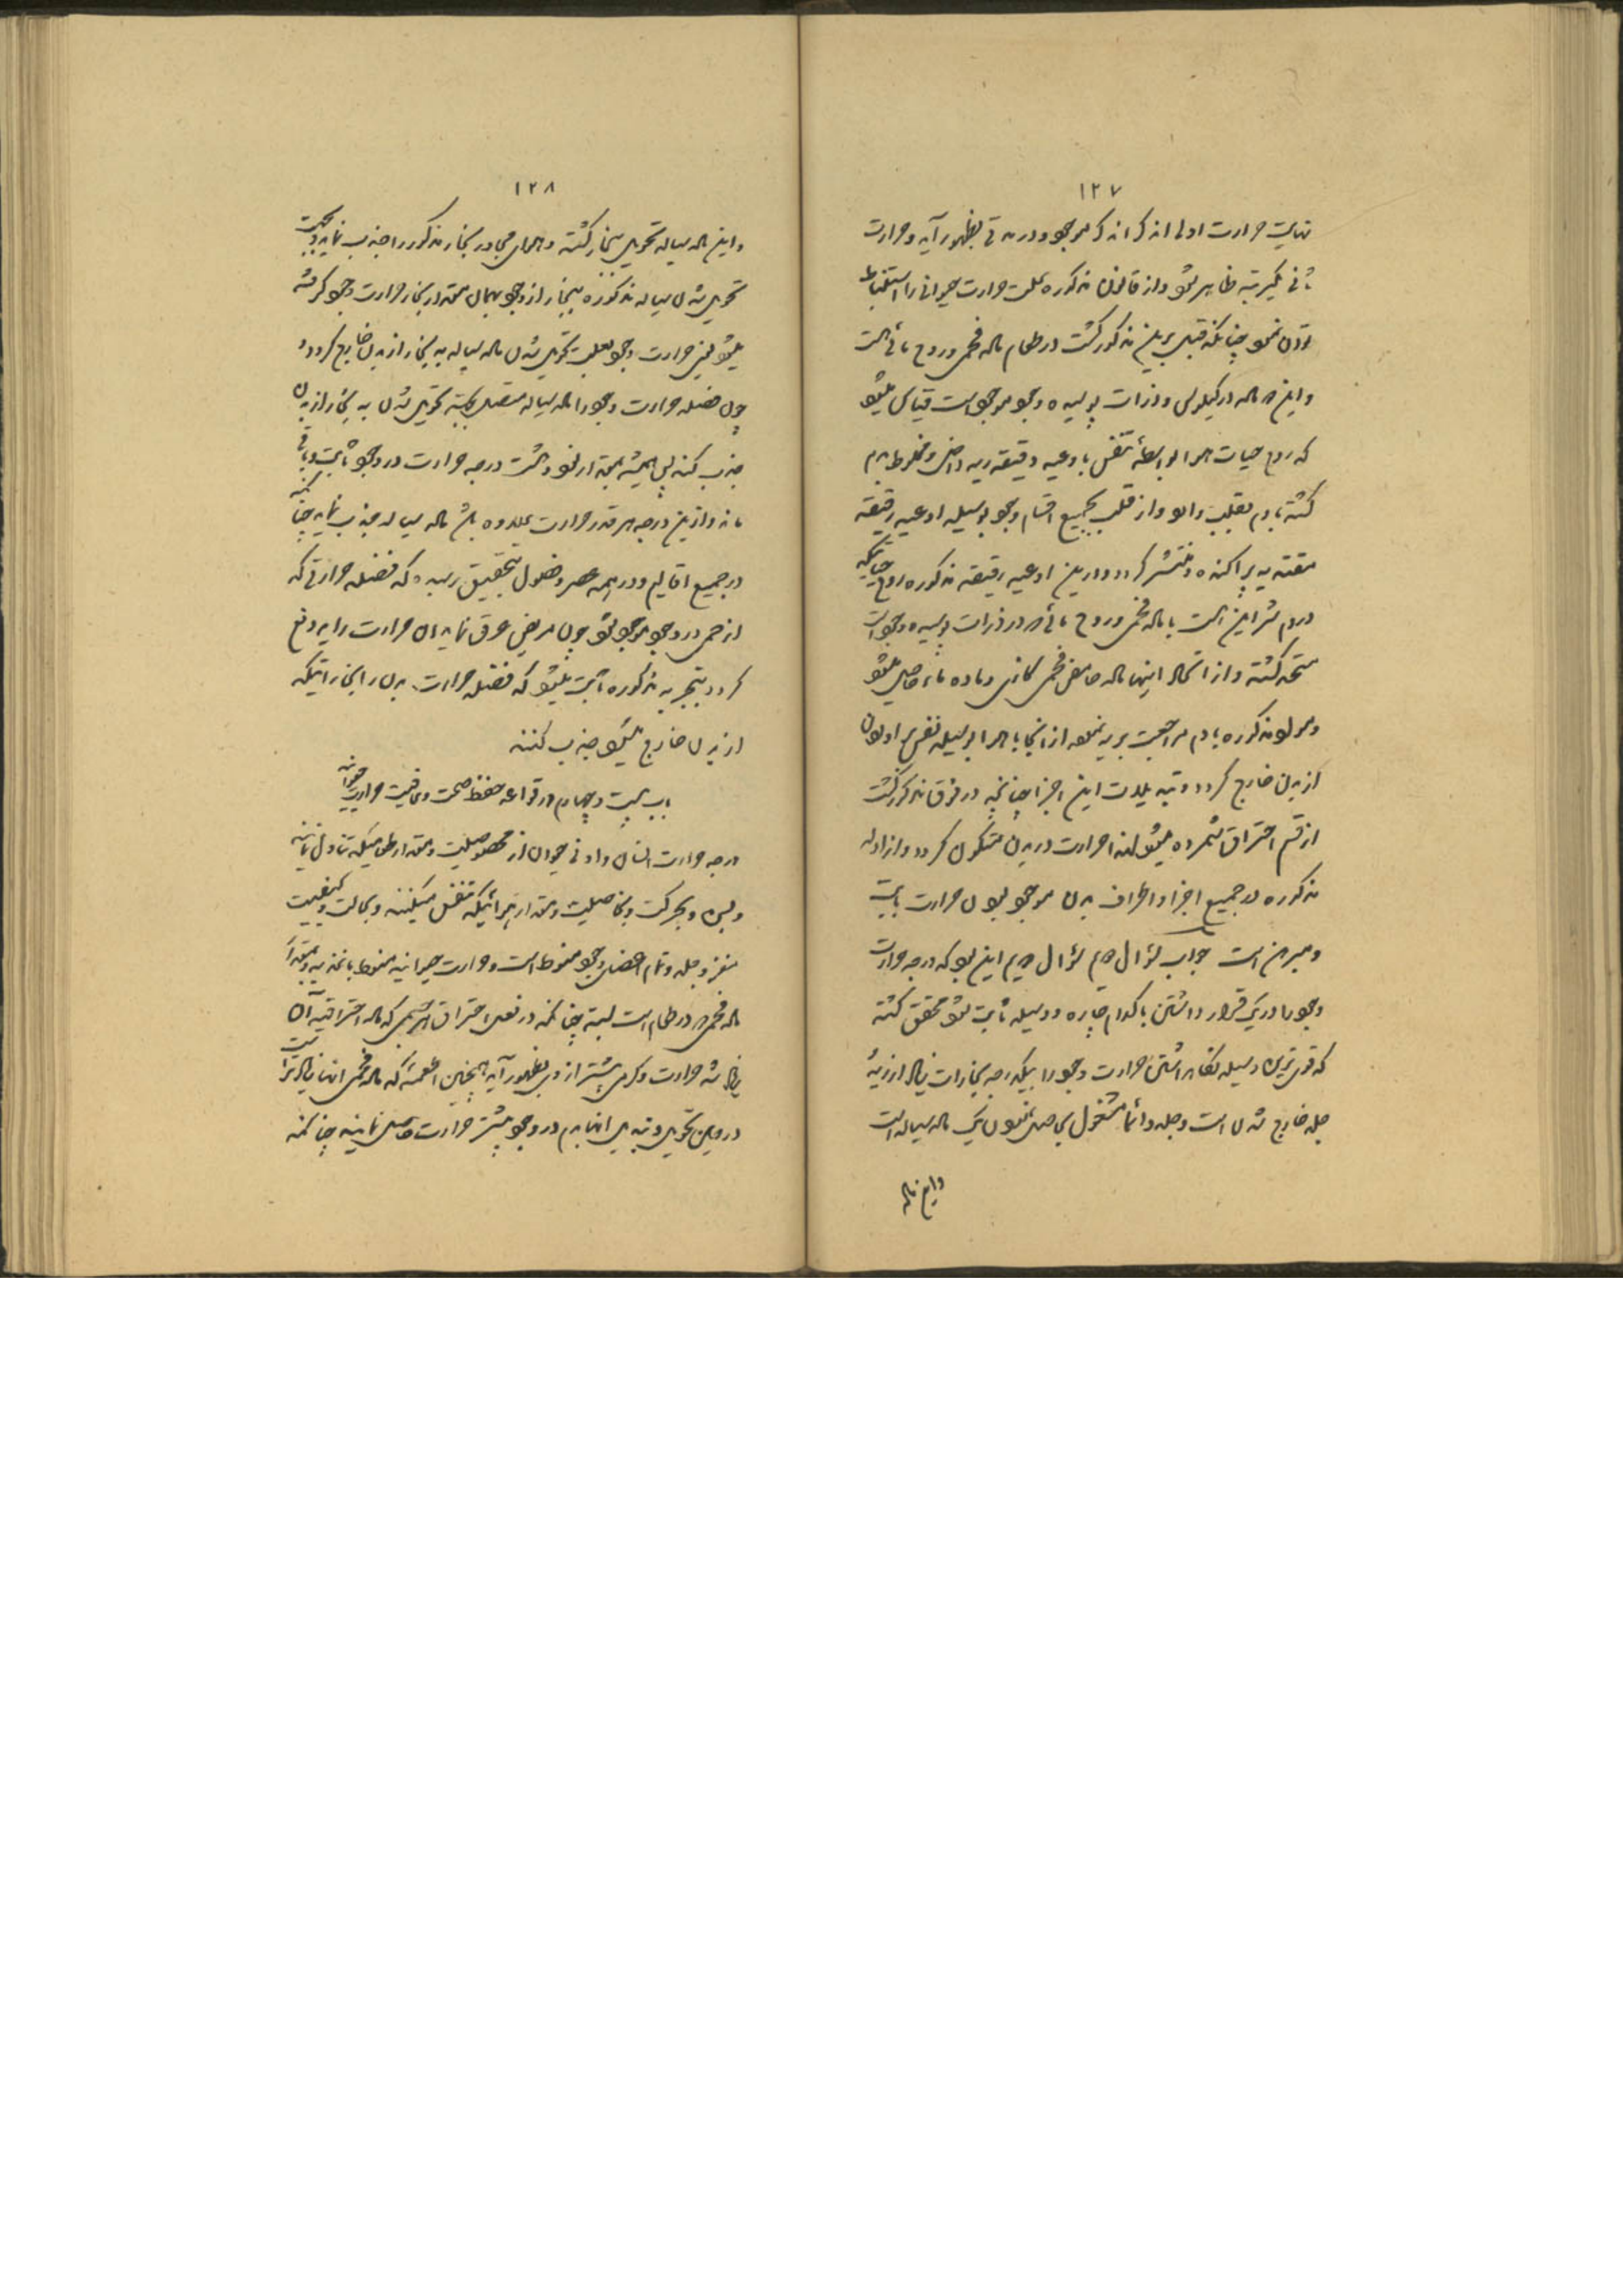 ١٢٧
نهایت حرارت اولی اندک اندک موجود و در مدتی بظهور آید و حرارت
ثانی بیکمرتبه ظاهر شود و از قانون مذکوره علت حرارت حیوانی را استنباط
توان نمود چنانکه قبل برین مذکور گشت در طعام ماده فحمی و روح مائی است
و این ماده در کیلوس و ذرات پوسیده وجود موجود است قیاس میشود
که روح حیات هوا بواسطهٔ تنفس باوعیه دقیقه ریه داخل و مخلوط بدم
گشته با دم بقلب وارد و از قلب بجمیع اقسام وجود بوسیله اوعیه رقیقه
پراکنده و منتشر گردد و در این اوعیه رقیقه مذکوره روح حیاتیکه
در دم شرایین است با ماده فحمی و روح مائی در ذرات پوسیده وجود است
متحد گشته و از اتحاد اینها ماده حامض فحمی کازی و ماده ماء حاصل میشود
و مذکوره با دم مراجعت بریه نموده از آنجا با هوا بوسیله تنفس
از بدن خارج گردد و تبدیلات این اجزا چنانچه در فوق مذکور گشت
از قسم احتراق شمرده میشود لهذا حرارت در بدن متکون گردد و از ادله
مذکوره در جمیع اجزا و اطراف بدن موجود بودن حرارت ثابت
و مبرهن است جواب سؤال دویم سؤال دویم این بود که درجه حرارت
وجود را در یک قرار داشتن با کدام چاره و وسیله ثابت شود محقق گشته
که قوی ترین وسیله نگاه داشتن حرارت وجود را بیکدرجه بخارات زیاد از زیر
جلد خارج شدن است و جلد دائما مشغول بحاصل نمودن یک ماده سیاله است
و این ماده
١٢٨
و این ماده سیاله تحویل ببخار گشته و هوای مجاور بخار مذکور را جذب نماید و بجهت
تحویل شدن سیاله مذکوره ببخار از وجود بهمان مقدار بخار حرارت وجود گرفته
میشود یعنی حرارت وجود بعلت تحویل شدن ماده سیاله به بخار از بدن خارج گردد و
چون فضله حرارت وجود را ماده سیاله متصل بجهة تحویل شدن به بخار از بدن
جذب کند پس همیشه بمقدار درجه حرارت در وجود ثابت و باقی
ماند و از این درجه هر قدر حرارت علاوه باشد ماده سیاله جذب نماید چنانکه
در جمیع اقالیم و در همه عصر و فصول بتحقیق رسیده که فضله حرارتی که
از حمی در وجود موجود شود چون مریض عرق نماید آن حرارت زاید دفع
گردد بتجربه مذکوره ثابت میشود که فضله حرارت بدن را بخاراتیکه
از بدن خارج میشود جذب کنند
باب بیست و چهارم در قواعد حفظ صحت و عاقبت حرارت حیوانیه
درجه حرارت انسان و ادنی حیوان از محصولیت و مقدار طعامیکه تناول نمایند
و بسن و بحرکت و بخاصیت و مقدار هوائیکه تنفس میکنند و بحالت و کیفیت
مغز و جلد و تمام اعضای وجود منوط است و حرارت حیوانیه منوط باغذیه و بمقدار
ماده فحمی در طعام است البته چنانکه در فعل احتراق هر جسمی که ماده احتراقیه آن
زیاد شد حرارت و گرمی بیشتر از وی بظهور آید همچنین اطعمهٔ که ماده فحمی آنها زیادتر است
در وقت تحویل و تبدیل آنها بدم در وجود بیشتر حرارت حاصل نمایند چنانکه